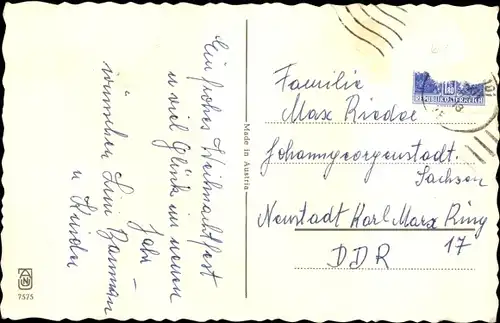 Ein frohes Weihnachtfest
u viel Glück im neuen
Jahr –
wünschen
u Kinder
Made in Austria
7575
Familie
Max Riedel
Johanngeorgenstadt.
Sachsen
Neustadt Karl Marx Ring
17
DDR
REPUBLIK ÖSTERREICH